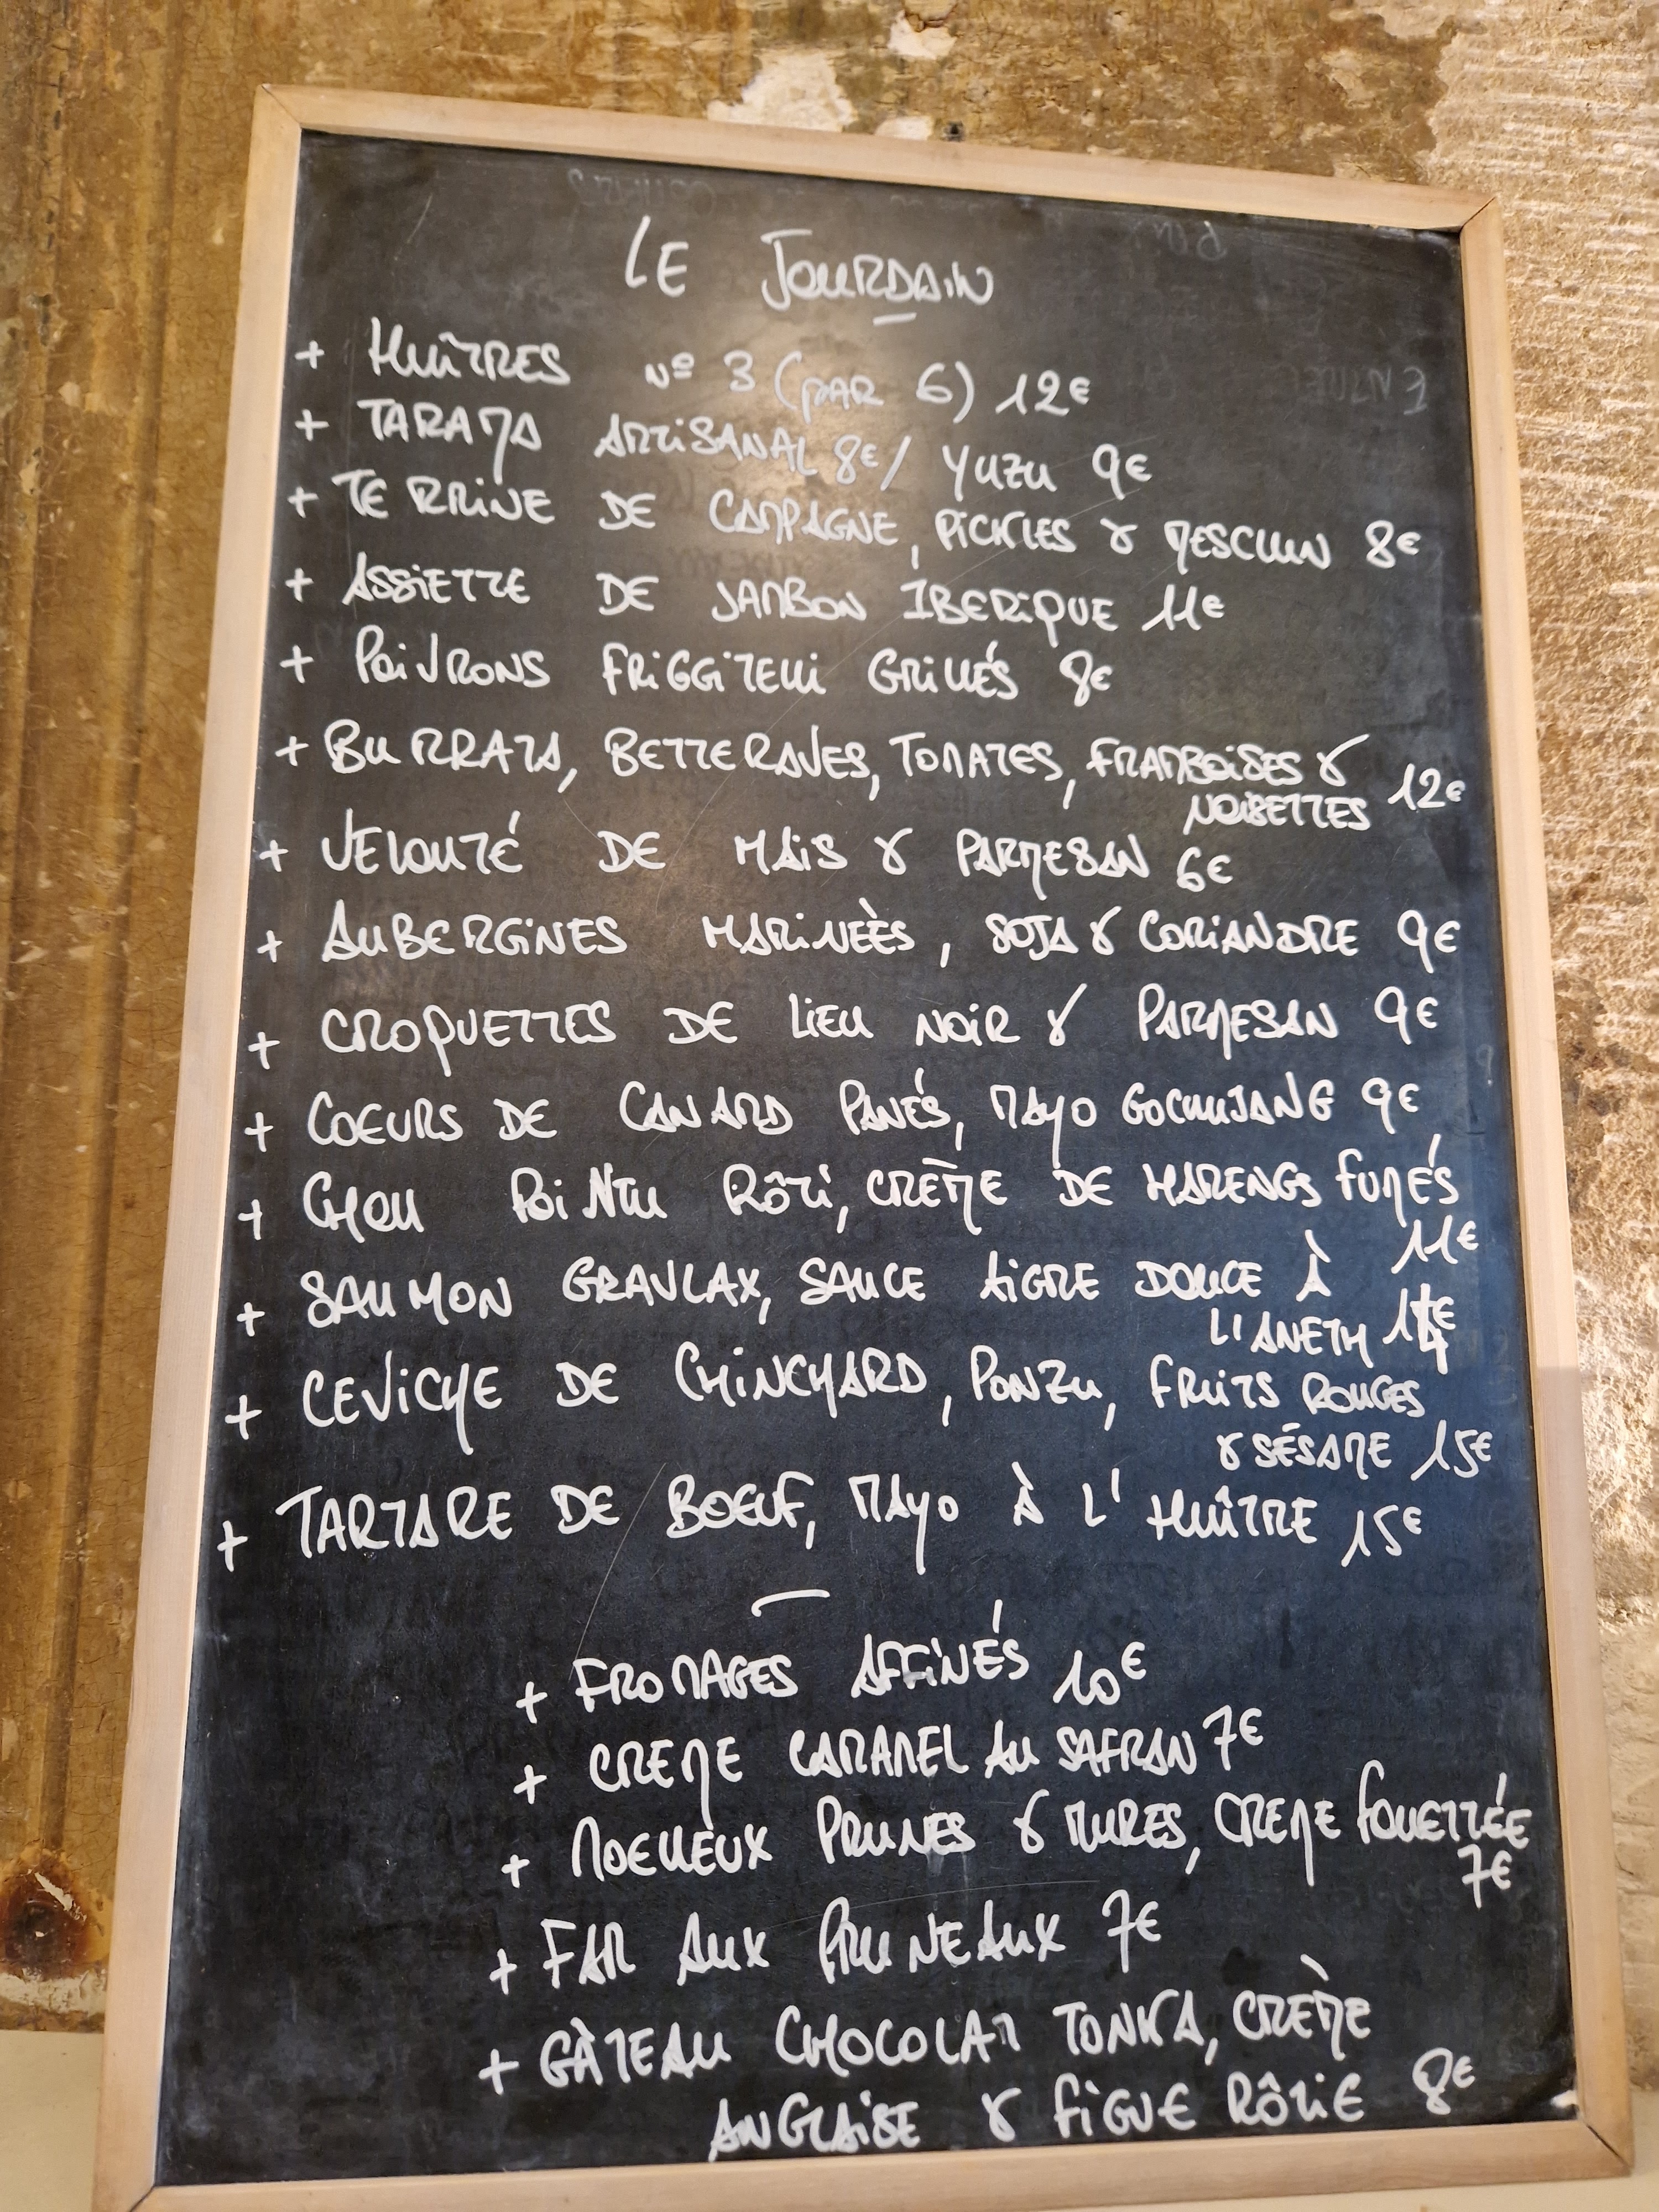 LE JOURDAIN
+ HUÎTRES Nº 3 (PAR 6) 12€
+ TARAMA ARTISANAL 8€/ YUZU 9€
+ TERRINE DE CAMPAGNE, PICKLES & MESCLUN 8€
+ ASSIETTE DE JAMBON IBERIQUE 11€
+ POIVRONS FRIGGITELLI GRILLÉS 8€
+ BURRATA, BETTERAVES, TOMATES, FRAMBOISES &
NOISETTES 12€
+ VELOUTÉ DE MAIS & PARMESAN 6€
+ AUBERGINES MARINEÈS, SOJA & CORIANDRE 9€
+ CROQUETTES DE LIEU NOIR & PARMESAN 9€
+ COEURS DE CANARD PANÉS, MAYO GOCHUJANG 9€
+ CHOU POINTU RÔTI, CRÈME DE HARENGS FUMÉS
11€
+ SAUMON GRAVLAX, SAUCE AIGRE DOUCE À
L'ANETH 14€
+ CEVICHE DE CHINCHARD, PONZU, FRUITS ROUGES
& SÉSAME 15€
+ TARTARE DE BOEUF, MAYO À L'HUÎTRE 15€
+ FROMAGES AFFINÉS 10€
+ CREME CARAMEL AU SAFRAN 7€
+ MOELLEUX PRUNES & MURES, CREME FOUETTÉE
7€
+ FAR AUX PRUNEAUX 7€
+ GÂTEAU CHOCOLAT TONKA, CRÈME
ANGLAISE & FIGUE RÔTIE 8€